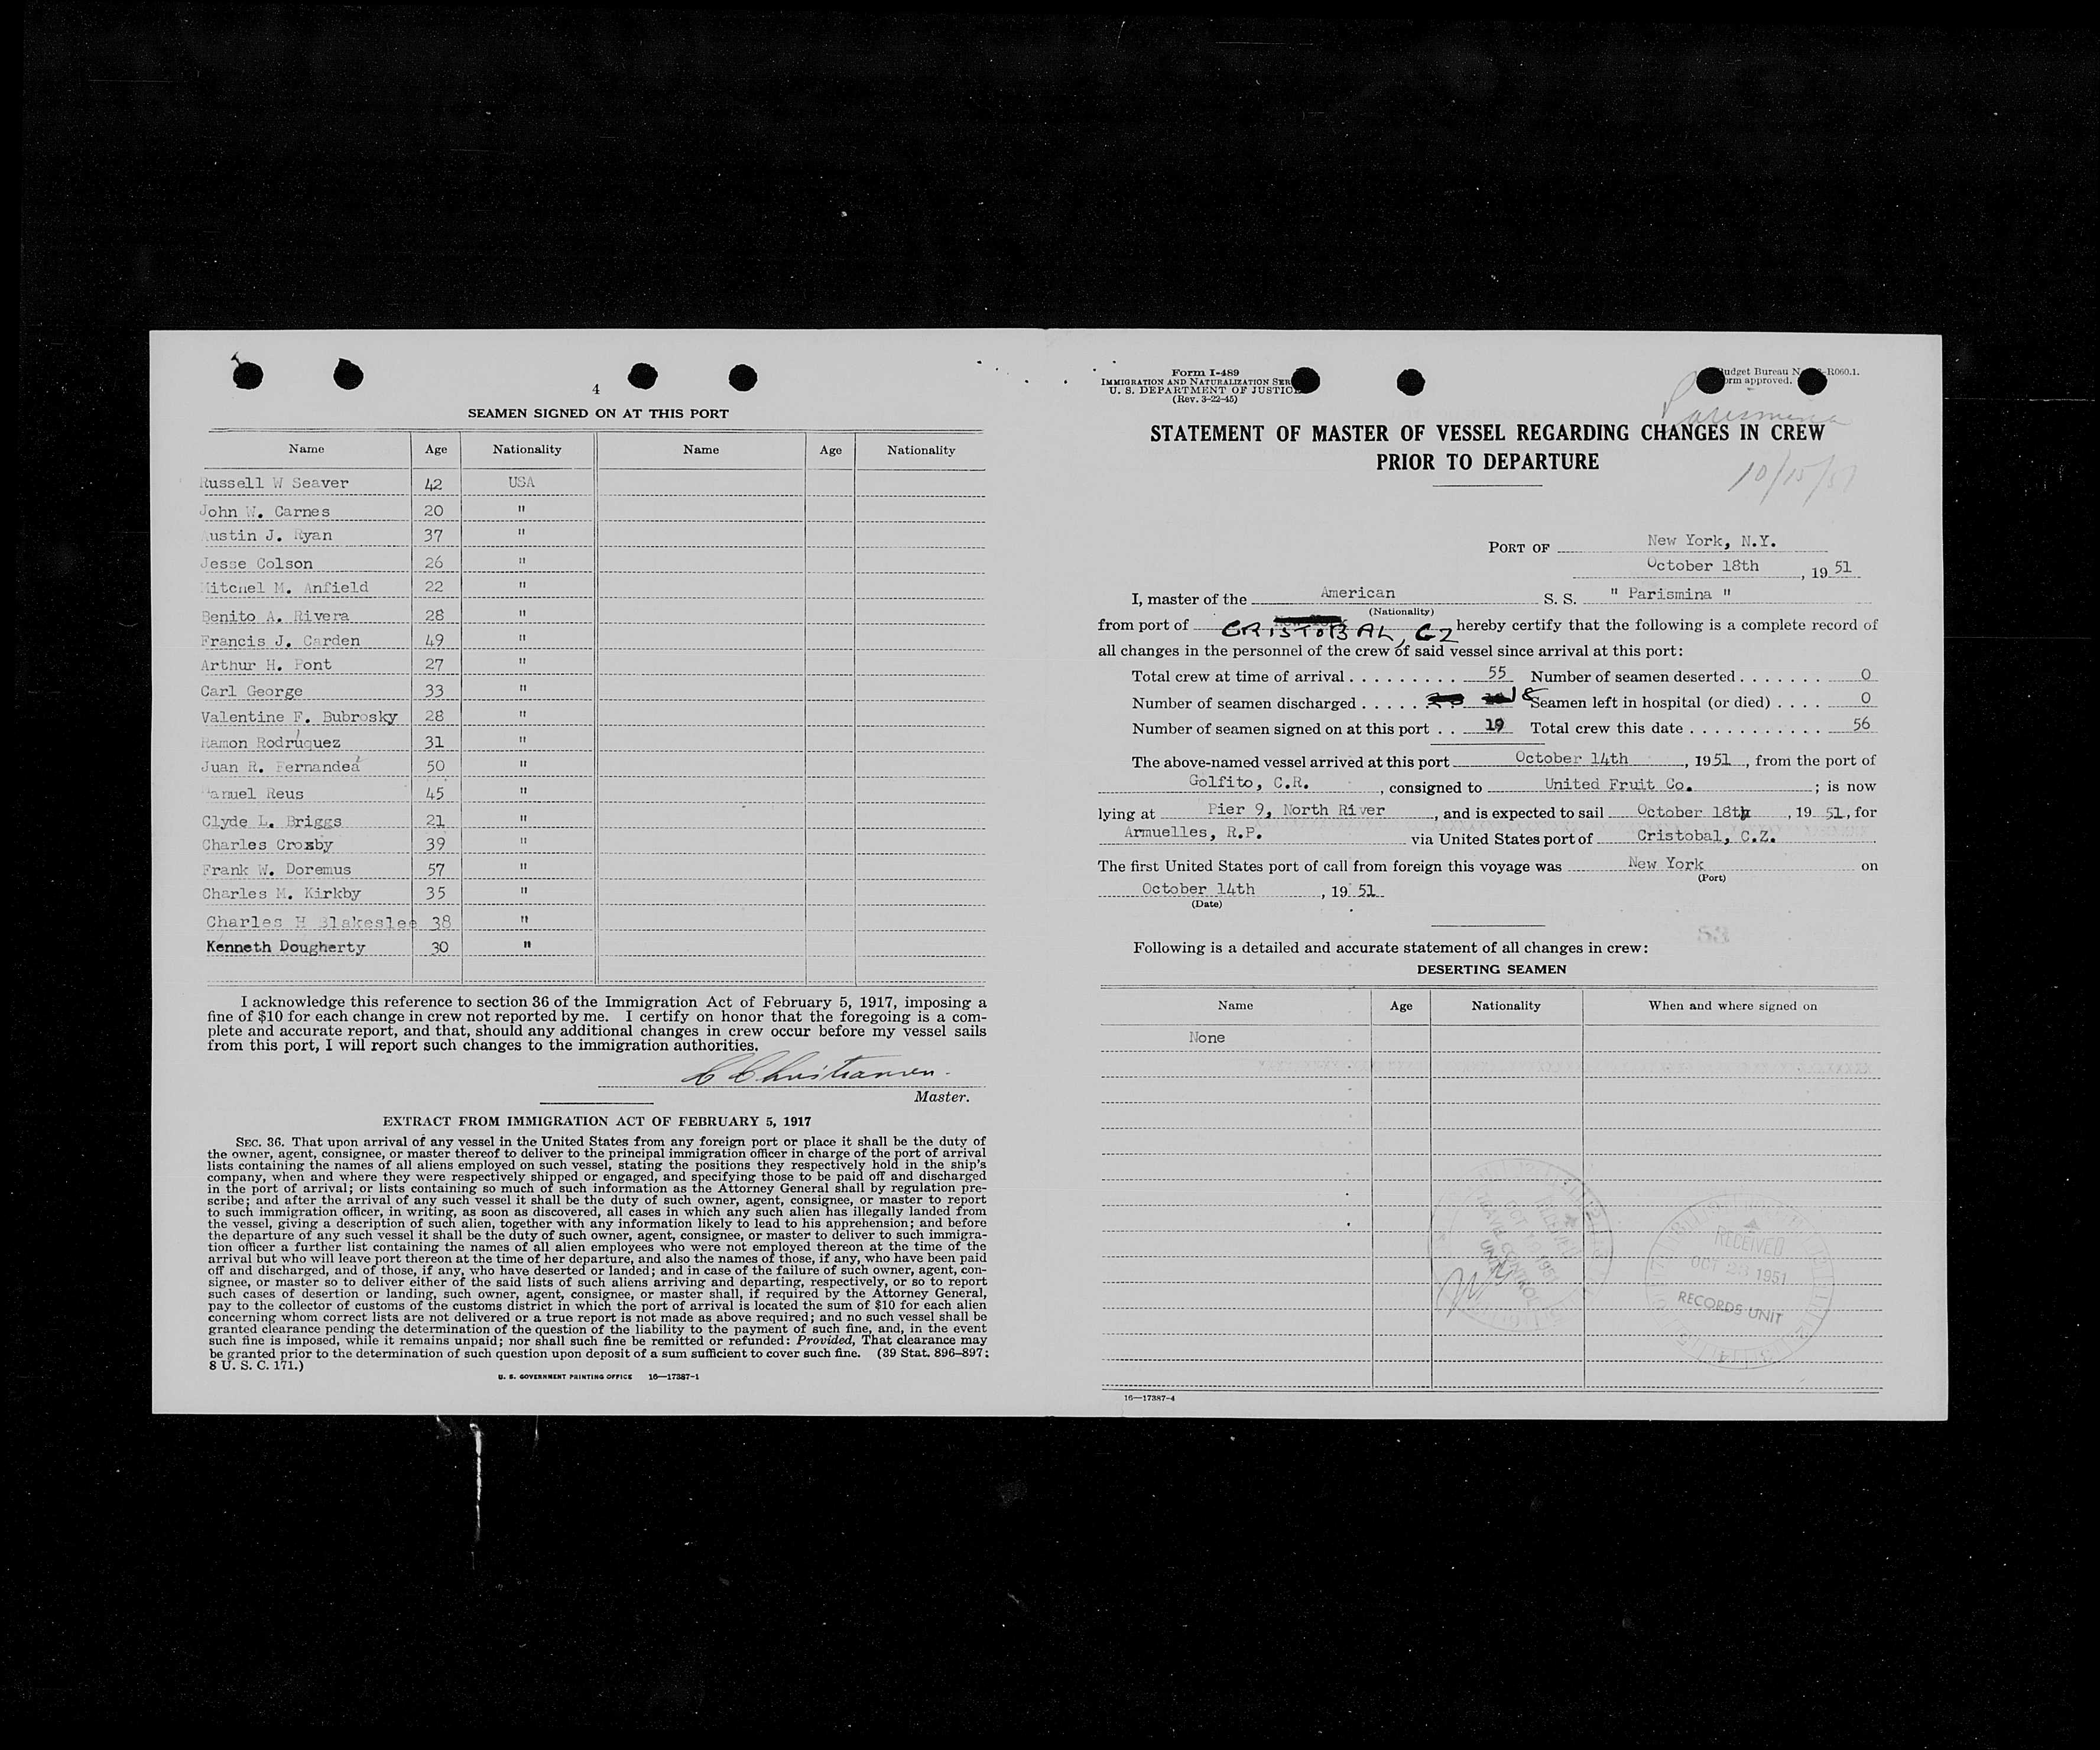 4
SEAMEN SIGNED ON AT THIS PORT
Name Age Nationality Name Age Nationality
Russell W Seaver 42 USA
John W. Carnes 20 "
ustin J. Ryan 37 "
Jesse Colson 26 "
Mitchel M. Anfield 22 "
Benito A. Rivera 28 "
Francis J. Carden 49 "
Arthur H. Font 27 "
Carl George 33 "
Valentine F. Bubrosky 28 "
Ramon Rodruquez 31 "
Juan R. Fernandea 50 "
Manuel Reus 45 "
Clyde L. Briggs 21 "
Charles Crosby 39 "
Frank W. Doremus 57 "
Charles M. Kirkby 35 "
Charles H Blakeslee 38 "
Kenneth Dougherty 30 "
I acknowledge this reference to section 36 of the Immigration Act of February 5, 1917, imposing a
fine of $10 for each change in crew not reported by me. I certify on honor that the foregoing is a com-
plete and accurate report, and that, should any additional changes in crew occur before my vessel sails
from this port, I will report such changes to the immigration authorities.
C Christiansen.
Master.
EXTRACT FROM IMMIGRATION ACT OF FEBRUARY 5, 1917
SEC. 36. That upon arrival of any vessel in the United States from any foreign port or place it shall be the duty of
the owner, agent, consignee, or master thereof to deliver to the principal immigration officer in charge of the port of arrival
lists containing the names of all aliens employed on such vessel, stating the positions they respectively hold in the ship's
company, when and where they were respectively shipped or engaged, and specifying those to be paid off and discharged
in the port of arrival; or lists containing so much of such information as the Attorney General shall by regulation pre-
scribe; and after the arrival of any such vessel it shall be the duty of such owner, agent, consignee, or master to report
to such immigration officer, in writing, as soon as discovered, all cases in which any such alien has illegally landed from
the vessel, giving a description of such alien, together with any information likely to lead to his apprehension; and before
the departure of any such vessel it shall be the duty of such owner, agent, consignee, or master to deliver to such immigra-
tion officer a further list containing the names of all alien employees who were not employed thereon at the time of the
arrival but who will leave port thereon at the time of her departure, and also the names of those, if any, who have been paid
off and discharged, and of those, if any, who have deserted or landed; and in case of the failure of such owner, agent, con-
signee, or master so to deliver either of the said lists of such aliens arriving and departing, respectively, or so to report
such cases of desertion or landing, such owner, agent, consignee, or master shall, if required by the Attorney General,
pay to the collector of customs of the customs district in which the port of arrival is located the sum of $10 for each alien
concerning whom correct lists are not delivered or a true report is not made as above required; and no such vessel shall be
granted clearance pending the determination of the question of the liability to the payment of such fine, and, in the event
such fine is imposed, while it remains unpaid; nor shall such fine be remitted or refunded: Provided, That clearance may
be granted prior to the determination of such question upon deposit of a sum sufficient to cover such fine. (39 Stat. 896–897;
8 U. S. C. 171.)
U. S. GOVERNMENT PRINTING OFFICE 16—17387-1
Form I-489
IMMIGRATION AND NATURALIZATION SER
U. S. DEPARTMENT OF JUSTIC
(Rev. 3-22-45)
udget Bureau N -R060.1.
orm approved.
Parismina
STATEMENT OF MASTER OF VESSEL REGARDING CHANGES IN CREW
PRIOR TO DEPARTURE
10/15/51
PORT OF New York, N.Y.
October 18th , 19 51
I, master of the American S. S. " Parismina "
(Nationality)
from port of CRISTOBAL, CZ hereby certify that the following is a complete record of
all changes in the personnel of the crew of said vessel since arrival at this port:
Total crew at time of arrival . . . . . . . . . 55 Number of seamen deserted . . . . . . . 0
Number of seamen discharged . . . . . 18 Seamen left in hospital (or died) . . . . 0
Number of seamen signed on at this port . . 19 Total crew this date . . . . . . . . . . . 56
The above-named vessel arrived at this port October 14th , 1951 , from the port of
Golfito, C.R. , consigned to United Fruit Co. ; is now
lying at Pier 9, North River , and is expected to sail October 18th , 19 51, for
Armuelles, R.P. via United States port of Cristobal, C.Z.
The first United States port of call from foreign this voyage was New York on
(Port)
October 14th , 19 51
(Date)
53
Following is a detailed and accurate statement of all changes in crew:
DESERTING SEAMEN
Name Age Nationality When and where signed on
None
RECEIVED
OCT 1951
LEAVE CONTROL
UNIT
RECEIVED
OCT 26 1951
RECORDS UNIT
16—17387-4